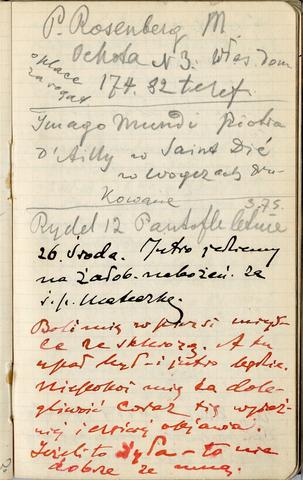 P. Rosenberg M.
Ochota N 3. Wł. dom
174. 32 telef.
Imago Mundi Piotra
D'Ailly w Saint Dié
w Wogezach dru-
kowane
3,75.
Rydel 12 Pantofle letnie
26. środa. Jutro jedziemy
na żałob. nabożeń. za
ś. p. Mateczkę.
Boli mię w piersi
A tu
upał był – i jutro będzie.
Niepokoi mię ta dole-
gliwość coraz się wyraź-
niej i częściej objawia.
Jeżeli to – to nie
dobrze ze mną.